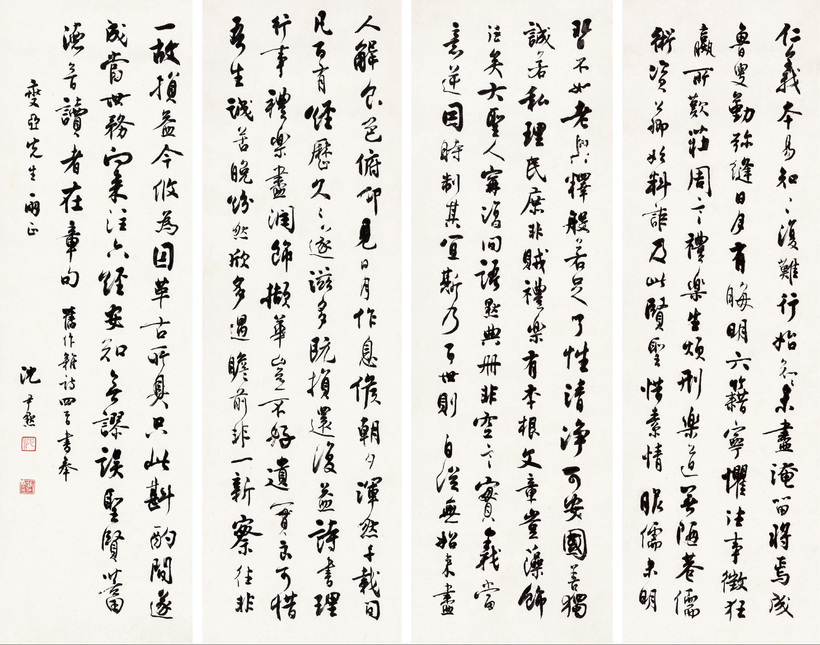 仁義本易知〻復難行始未盡淹留將焉成
魯叟勤弥縫日月有晦明六籍寧懼往事徵狂
嬴所歎莊周言禮樂生煩刑樂道無陋巷儒
術資公卿始料詎及此賢聖惜素情眼儒未明
習不如老與釋般若足了性清净可安國善獨
誠若私理民庶非賊禮樂有本根文章豈藻飾
往矣大聖人寤問語默典冊非空言實義當
意逆因時制其宜斯乃百世則 自從無始來盡
人解色俯仰見日月作息候朝夕渾然千載同
凡百有經歷久〻遂滋多既損還復益詩書理
行事禮樂盡潤飾擷華豈不好遺實良可惜
吾生誠苦晚紛然欣多遇瞻前非一新察往非
一故損益今攸為因革古所具只此斟酌間遂
成當世務向來注六經安知無謬誤聖賢當
言讀者在章句 舊作雜詩四首書奉
夔亞先生兩正
沈尹默